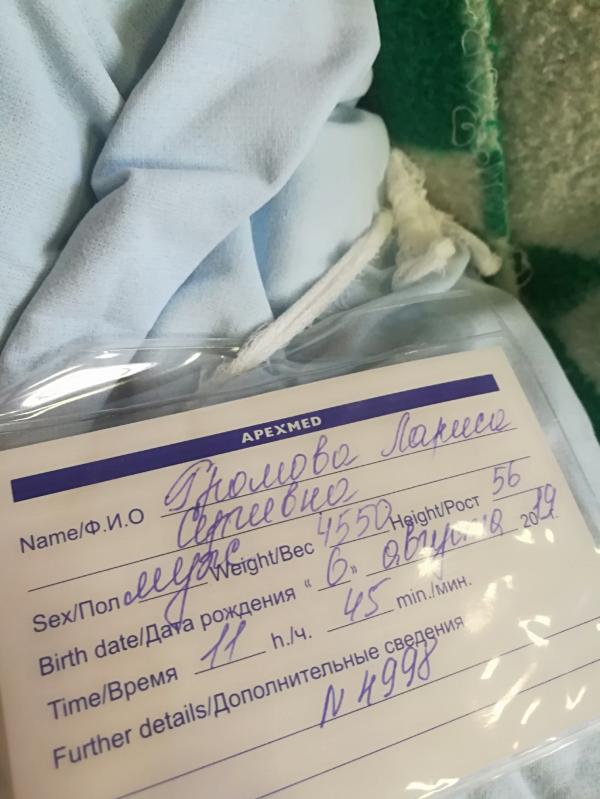 APEXMED
Name/Ф.И.О Громова Лариса
Сергеевна
Sex/Пол муж Weight/Вес 4550 Height/Рост 56
Birth date/Дата рождения "6" августа 2019
Time/Время 11 h./ч. 45 min./мин.
Further details/Дополнительные сведения
N 4998